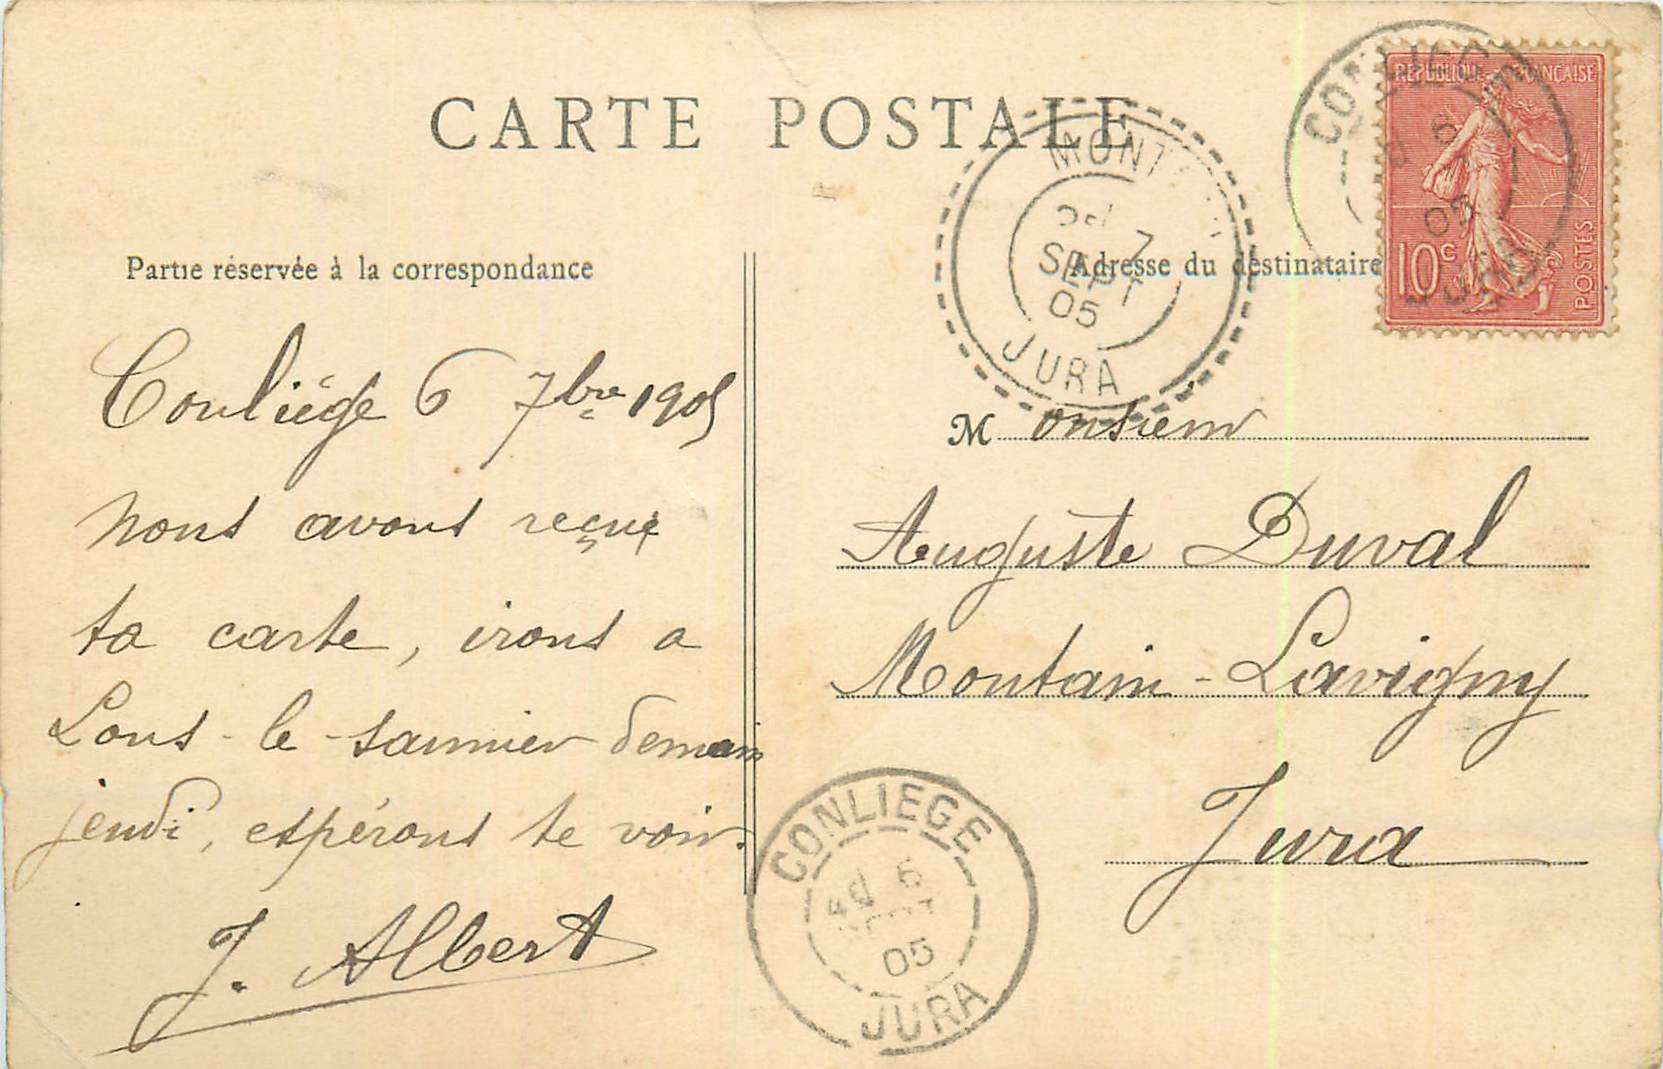 CARTE POSTALE
Partie réservée à la correspondance
Conliége 6 7bre 1905
nous avons reçue
ta carte, irons a
Lons-le-saunier demain
jeudi, espérons te voir.
J. Albert
CONLIEGE
6
05
JURA
MONT
7
SEPT
05
JURA
Adresse du destinataire
REPUBLIQUE FRANÇAISE
10c
POSTES
CONLIEGE
6
05
JURA
Monsieur
Auguste Duval
Montain-Lavigny
Jura